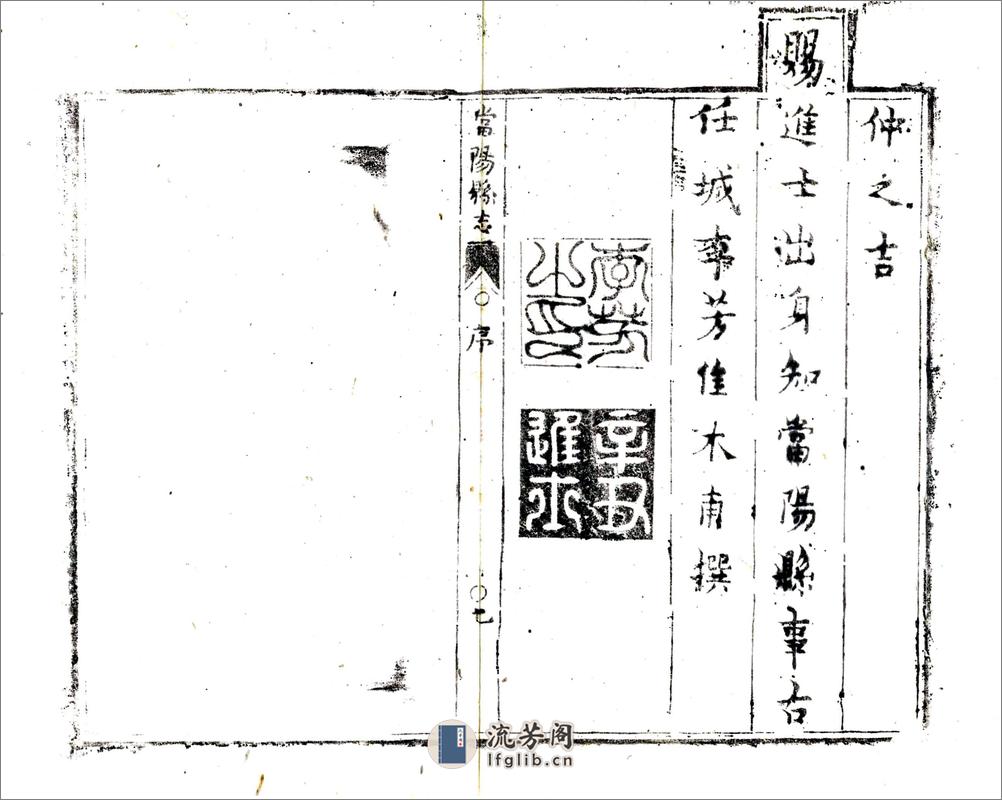 仲之吉
賜進士出身知當陽縣事古
任城李芳佳木甫撰
李芳之印
辛丑進士
當陽縣志 序 七
流芳阁
lfglib.cn